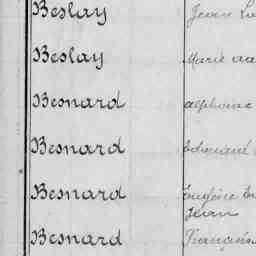 Beslay Jean
Beslay Marie
Besnard alphonse
Besnard Edouard
Besnard Eugène
Jean
Besnard François